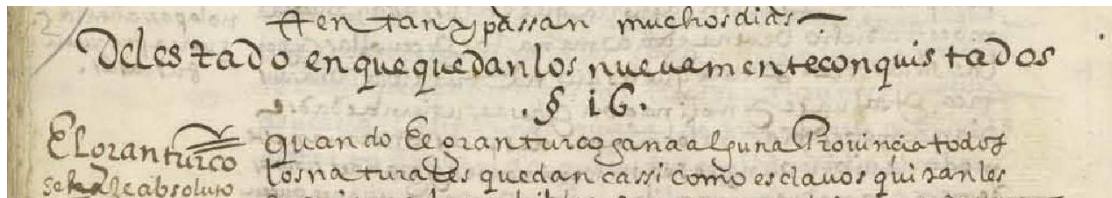 tentan y passan muchos dias
Del estado en que quedan los nuevamente conquistados
. § 16 .
El gran turco
se haze absoluto
Quando El gran turco gana alguna Provinçia todos
los naturales quedan cassi como esclavos quitanles